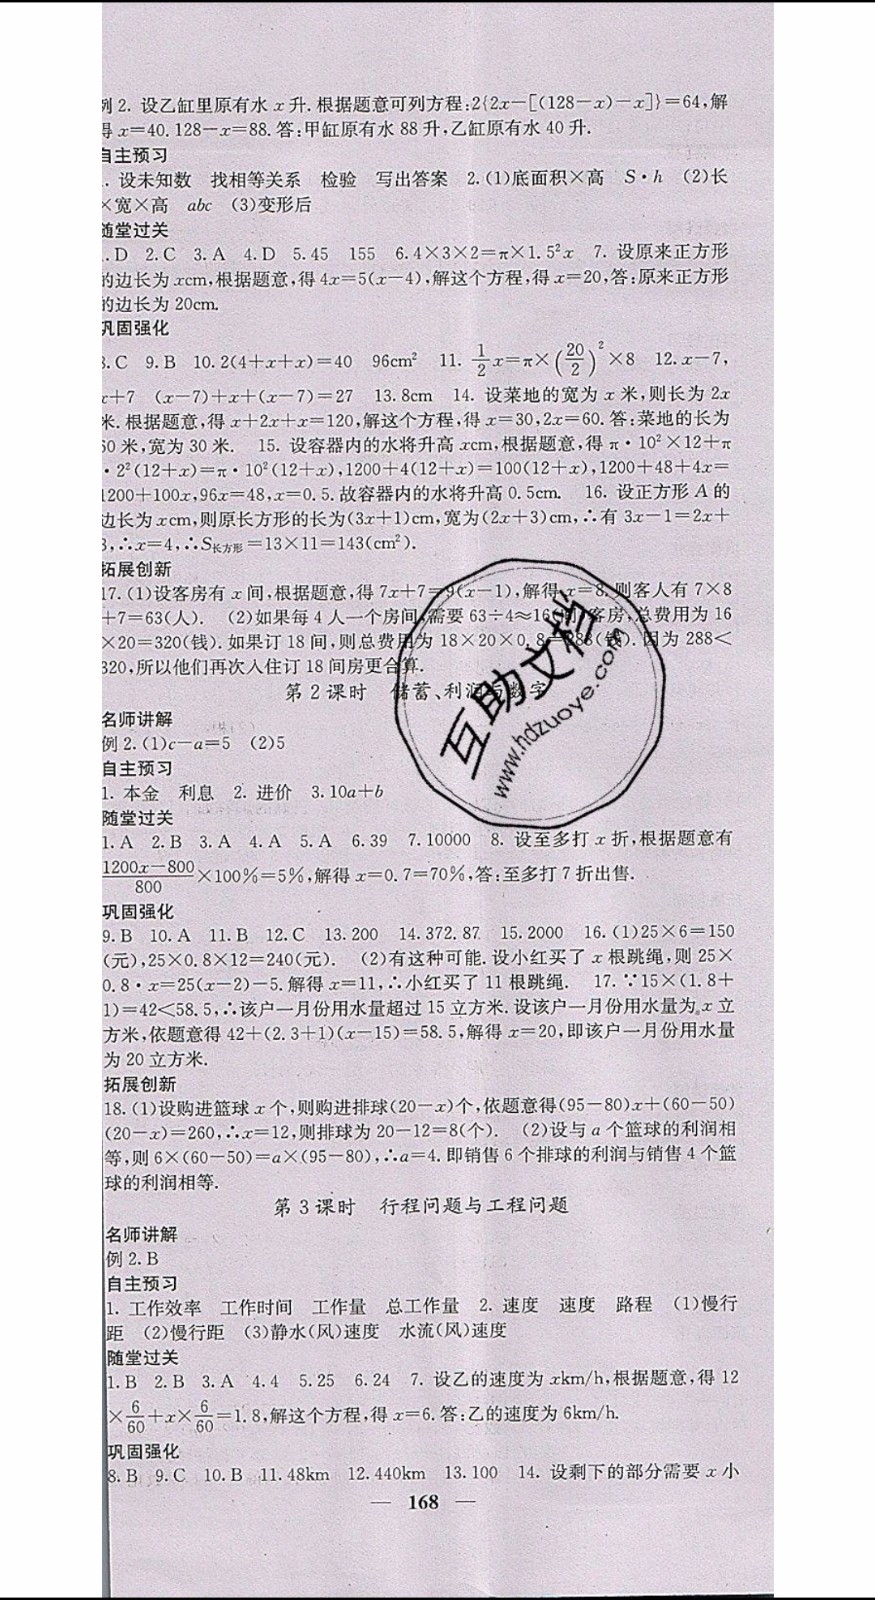 例 2. 设乙缸里原有水 x 升.根据题意可列方程:2{2x-[(128-x)-x]}=64,解
得 x=40.128-x=88.答:甲缸原有水 88 升,乙缸原有水 40 升.
自主预习
. 设未知数 找相等关系 检验 写出答案 2.(1)底面积×高 S·h (2)长
×宽×高 abc (3)变形后
随堂过关
.D 2.C 3.A 4.D 5.45 155 6.4×3×2=π×1.5²x 7. 设原来正方形
的边长为 xcm,根据题意,得 4x=5(x-4),解这个方程,得 x=20,答:原来正方形
的边长为 20cm.
巩固强化
8.C 9.B 10.2(4+x+x)=40 96cm² 11. 1/2 x=π×(20/2)²×8 12.x-7,
x+7 (x-7)+x+(x-7)=27 13.8cm 14. 设菜地的宽为 x 米,则长为 2x
米.根据题意,得 x+2x+x=120,解这个方程,得 x=30,2x=60.答:菜地的长为
60 米,宽为 30 米. 15. 设容器内的水将升高 xcm,根据题意,得 π·10²×12+π
·2²(12+x)=π·10²(12+x),1200+4(12+x)=100(12+x),1200+48+4x=
1200+100x,96x=48,x=0.5.故容器内的水将升高 0.5cm. 16. 设正方形 A 的
边长为 xcm,则原长方形的长为(3x+1)cm,宽为(2x+3)cm,∴有 3x-1=2x+
3,∴x=4,∴S长方形=13×11=143(cm²).
拓展创新
17.(1)设客房有 x 间,根据题意,得 7x+7=9(x-1),解得 x=8.则客人有 7×8
+7=63(人). (2)如果每 4 人一个房间,需要 63÷4≈16间客房,总费用为 16
×20=320(钱).如果订 18 间,则总费用为 18×20×0.8=288(钱).因为 288<
320,所以他们再次入住订 18 间房更合算.
第 2 课时 储蓄、利润与数字
名师讲解
例 2.(1)c-a=5 (2)5
自主预习
1. 本金 利息 2. 进价 3.10a+b
随堂过关
1.A 2.B 3.A 4.A 5.A 6.39 7.10000 8. 设至多打 x 折,根据题意有
(1200x-800)/800 ×100%=5%,解得 x=0.7=70%,答:至多打 7 折出售.
巩固强化
9.B 10.A 11.B 12.C 13.200 14.372.87 15.2000 16.(1)25×6=150
(元),25×0.8×12=240(元). (2)有这种可能.设小红买了 x 根跳绳,则 25×
0.8·x=25(x-2)-5.解得 x=11,∴小红买了 11 根跳绳. 17.∵15×(1.8+
1)=42<58.5,∴该户一月份用水量超过 15 立方米.设该户一月份用水量为 x 立
方米,依题意得 42+(2.3+1)(x-15)=58.5,解得 x=20,即该户一月份用水量
为 20 立方米.
拓展创新
18.(1)设购进篮球 x 个,则购进排球(20-x)个,依题意得(95-80)x+(60-50)
(20-x)=260,∴x=12,则排球为 20-12=8(个). (2)设与 a 个篮球的利润相
等,则 6×(60-50)=a×(95-80),∴a=4.即销售 6 个排球的利润与销售 4 个篮
球的利润相等.
第 3 课时 行程问题与工程问题
名师讲解
例 2.B
自主预习
1. 工作效率 工作时间 工作量 总工作量 2. 速度 速度 路程 (1)慢行
距 (2)慢行距 (3)静水(风)速度 水流(风)速度
随堂过关
1.B 2.B 3.A 4.4 5.25 6.24 7. 设乙的速度为 xkm/h,根据题意,得 12
×6/60+x×6/60=1.8,解这个方程,得 x=6.答:乙的速度为 6km/h.
巩固强化
8.B 9.C 10.B 11.48km 12.440km 13.100 14. 设剩下的部分需要 x 小
— 168 —
互助文档
www.hdzuoye.com